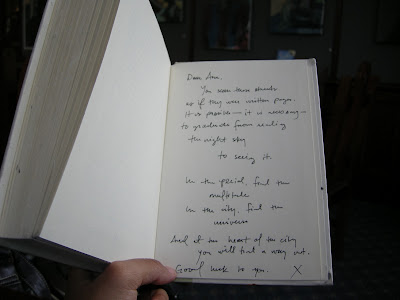 Dear Ann,
You roam these streets
as if they were written pages.
It is possible — it is necessary —
to graduate from reading
the night sky
to seeing it.
In the special, find the
multitude
In the city, find the
universe
And at the heart of the city
you will find a way out.
Good luck to you. X